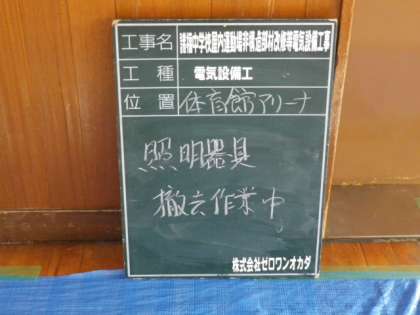 工事名 諸福中学校屋内運動場非構造部材改修等電気設備工事
工種 電気設備工
位置 体育館アリーナ
照明器具
撤去作業中
株式会社ゼロワンオカダ